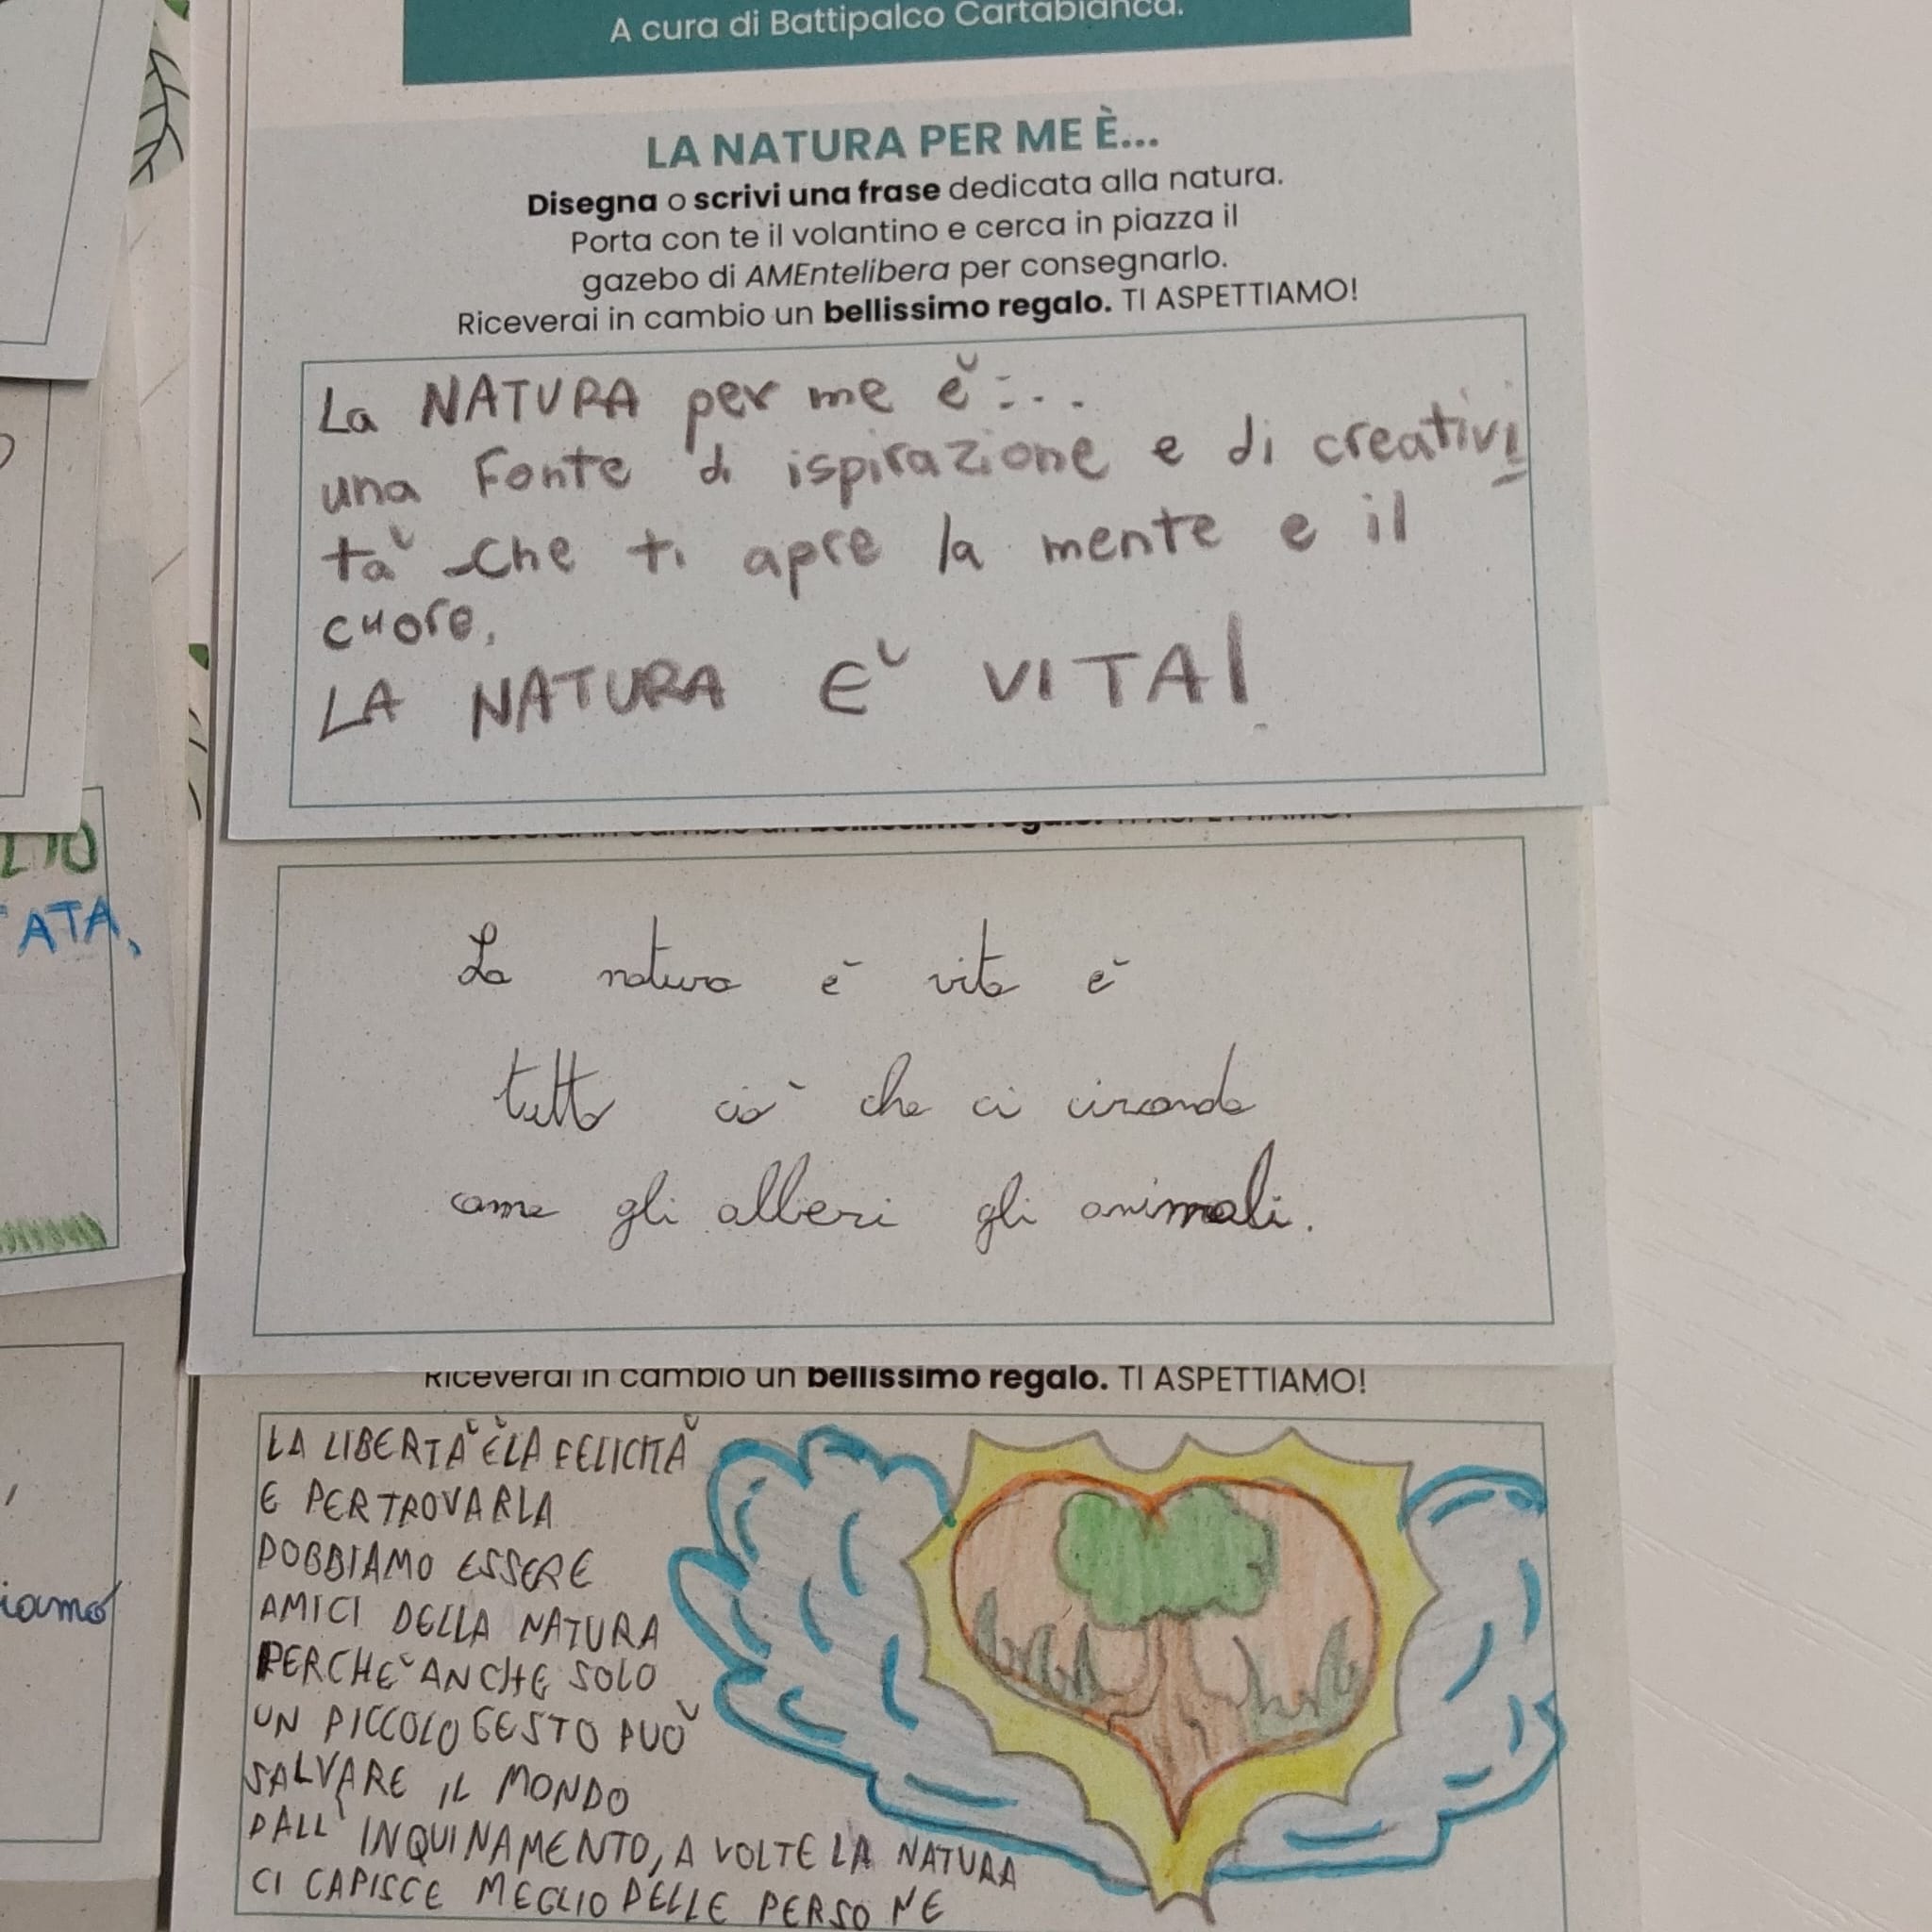 A cura di Battipalco Cartabianca.
LA NATURA PER ME È...
Disegna o scrivi una frase dedicata alla natura.
Porta con te il volantino e cerca in piazza il
gazebo di AMEntelibera per consegnarlo.
Riceverai in cambio un bellissimo regalo. TI ASPETTIAMO!
La NATURA per me è:...
una Fonte di ispirazione e di creativi
tà che ti apre la mente e il
cuore.
LA NATURA E' VITA!
Riceverai in cambio un bellissimo regalo. TI ASPETTIAMO!
La natura è vita è
tutto ciò che ci circonda
come gli alberi gli animali.
Riceverai in cambio un bellissimo regalo. TI ASPETTIAMO!
LA LIBERTÀ È LA FELICITÀ
E PER TROVARLA
DOBBIAMO ESSERE
AMICI DELLA NATURA
PERCHÈ ANCHE SOLO
UN PICCOLO GESTO PUÒ
SALVARE IL MONDO
DALL'INQUINAMENTO, A VOLTE LA NATURA
CI CAPISCE MEGLIO DELLE PERSONE
ATA,
iamo